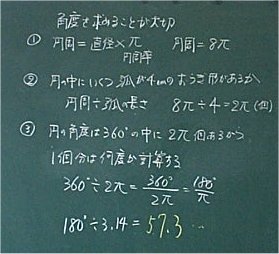 角度を求めることが大切
① 円周 = 直径×π 円周 = 8π
円周率
② 円の中にいくつ弧が4cmのおうぎ形があるか
円周÷弧の長さ 8π÷4=2π(個)
③ 円の角度は360°の中に2π個あるから
1個分は何度か計算する
360°÷2π = 360°/2π = 180°/π
180°÷3.14 = 57.3…